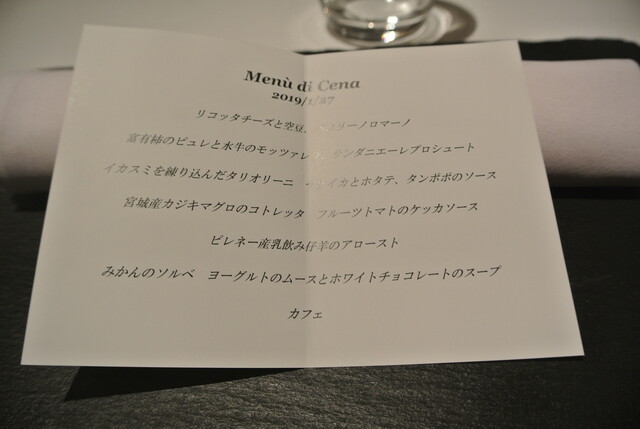 Menù di Cena
2019/1/27
リコッタチーズと空豆、 リーノロマーノ
富有柿のピュレと水牛のモッツァレラ サンダニエーレプロシュート
イカスミを練り込んだタリオリーニ イカとホタテ、タンポポのソース
宮城産カジキマグロのコトレッタ フルーツトマトのケッカソース
ピレネー産乳飲み仔羊のアロースト
みかんのソルベ ヨーグルトのムースとホワイトチョコレートのスープ
カフェ